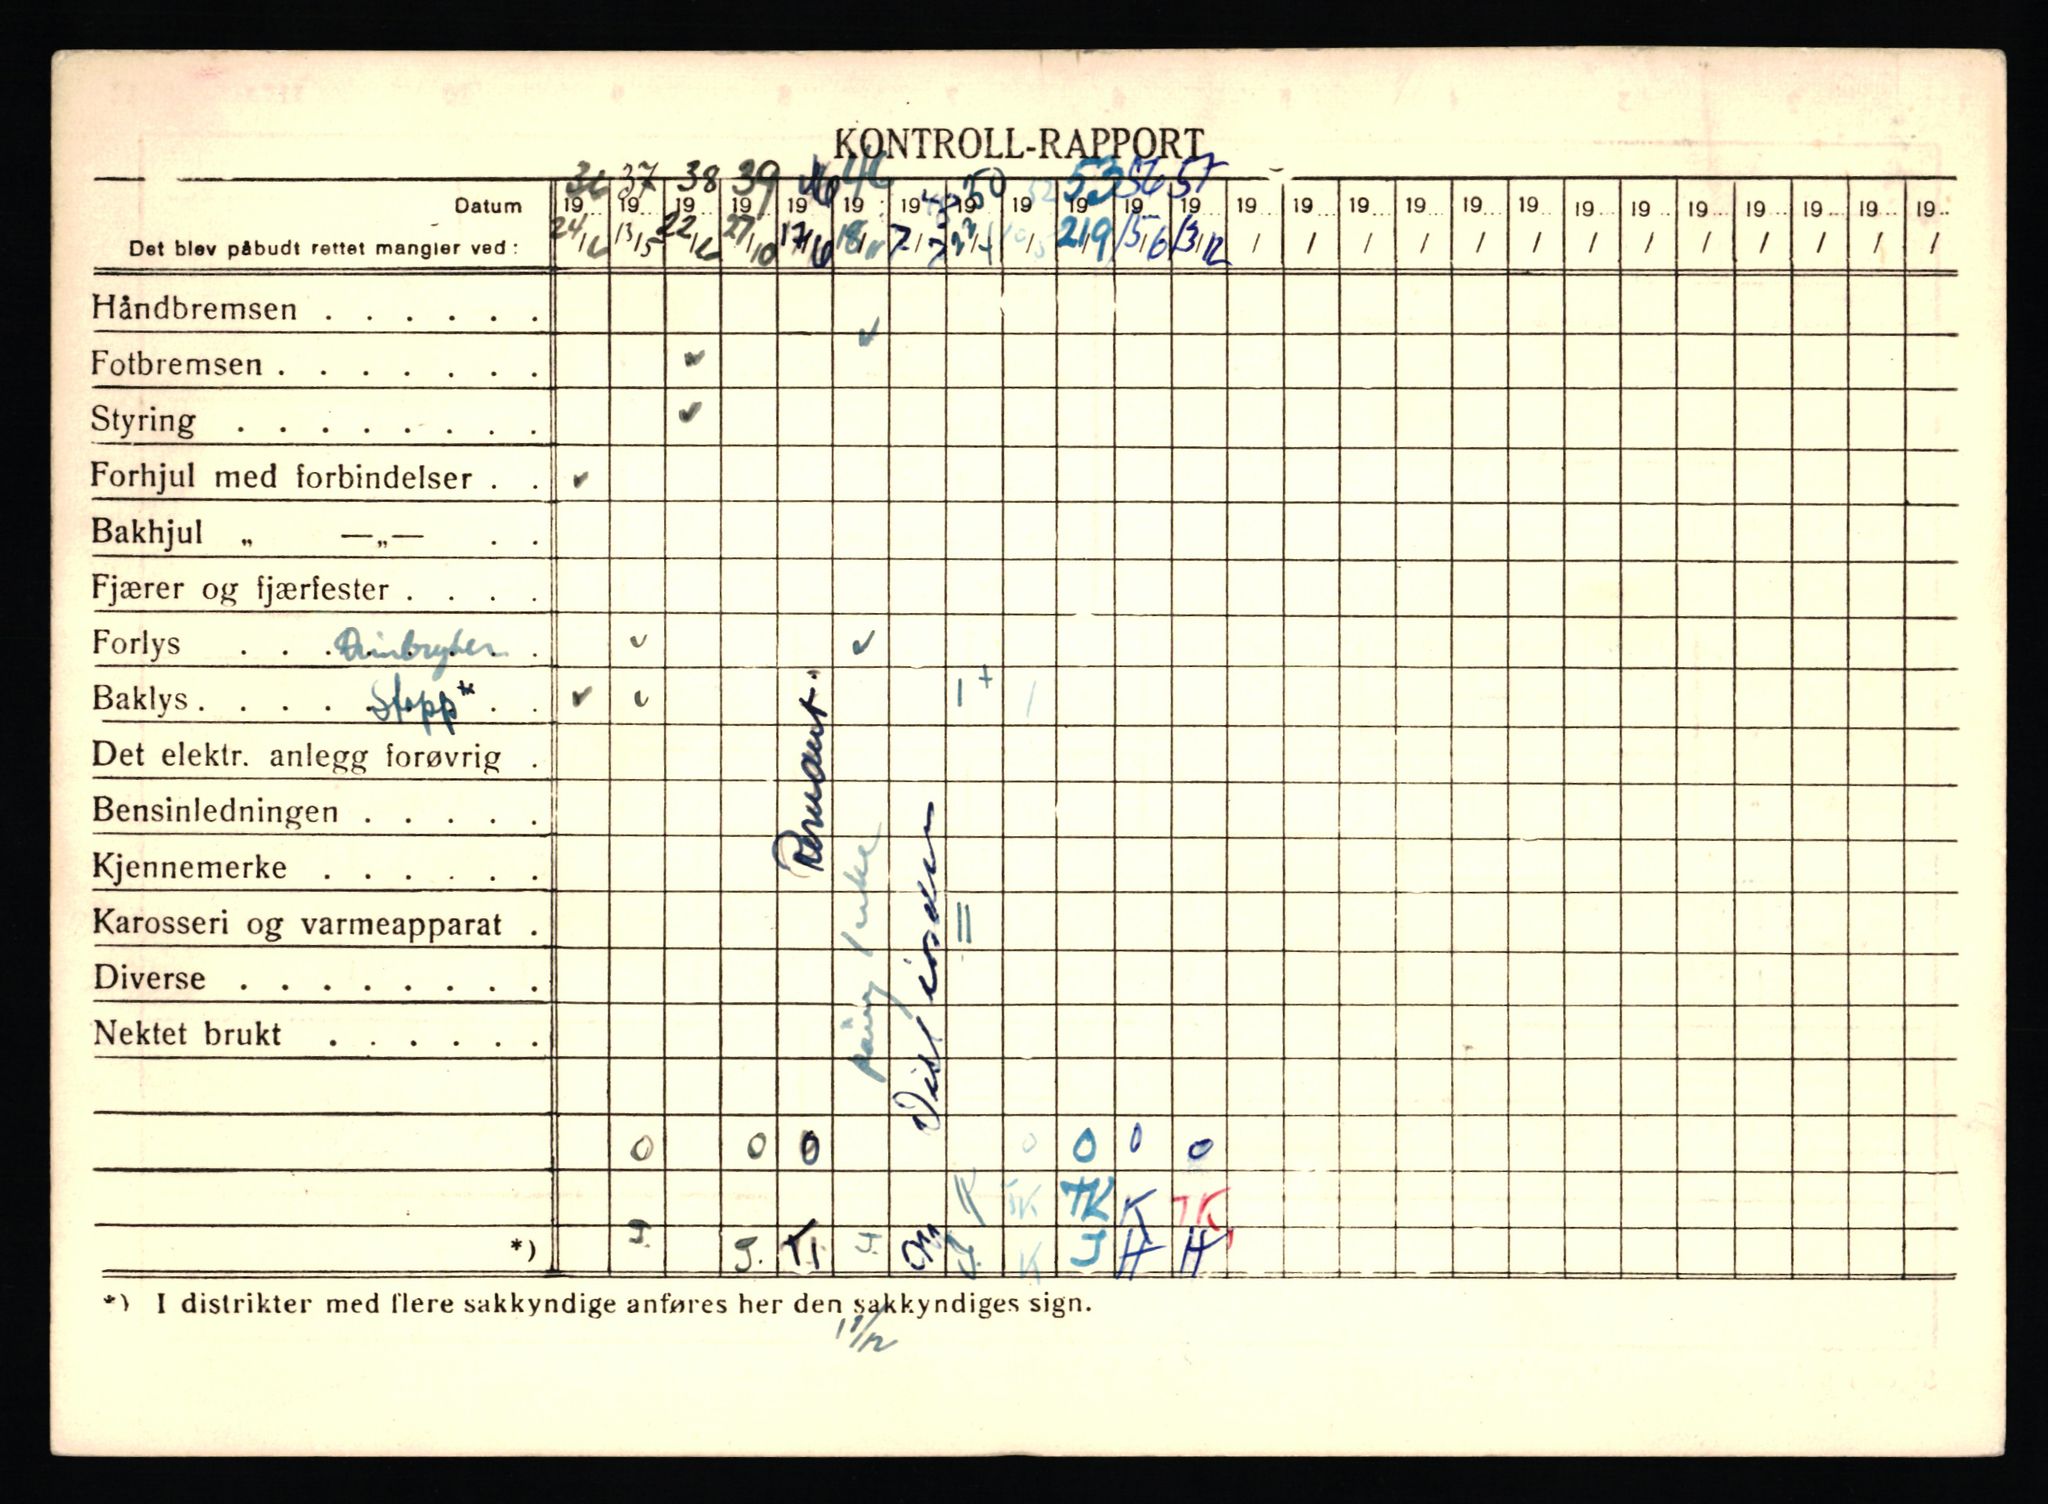 KONTROLL-RAPPORT
36 37 38 39 46 46 48 50 52 53 56 57
Datum 19 19 19 19 19 19 19 19 19 19 19 19 19 19 19 19 19 19 19 19 19 19 19 19 19
Det blev påbudt rettet mangler ved: 24/6 13/5 22/6 27/10 17/6 18/11 7/7 23/1 2/9 15/6 13/12 / / / / / / / / / / / / /
Håndbremsen . . . . . .
Fotbremsen . . . . . . . ✓ ✓
Styring . . . . . . . . ✓
Forhjul med forbindelser . . ✓
Bakhjul „ —„— . .
Fjærer og fjærfester . . . .
Forlys . . . . . . ✓ ✓
Baklys . . . . Stopp* . . ✓ ✓ 1 + /
Det elektr. anlegg forøvrig .
Bensinledningen . . . . .
Kjennemerke . . . . . .
Karosseri og varmeapparat . ||
Diverse . . . . . . . .
Nektet brukt . . . . . .
0 0 0 0 0 0 0
TK TK K TK
*) J. J. J. J. K J H H
*) I distrikter med flere sakkyndige anføres her den sakkyndiges sign.
17/12